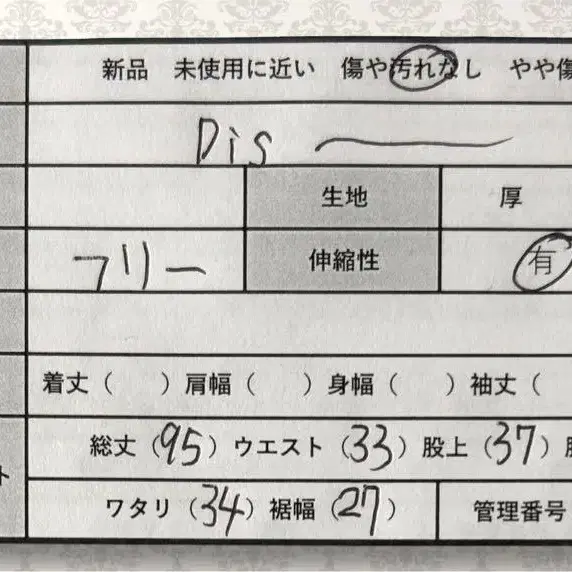 新品 未使用に近い 傷や汚れなし やや傷
Dis
生地 厚
フリー 伸縮性 有
着丈( )肩幅( )身幅( )袖丈(
総丈(95)ウエスト(33)股上(37)
ト
ワタリ(34)裾幅(27) 管理番号